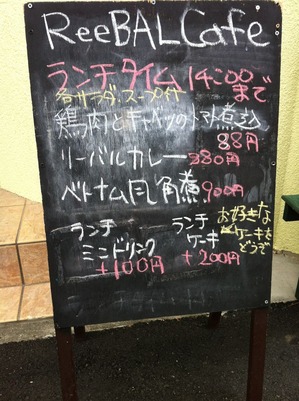 ReeBALCafe
ランチタイム 14:00まで
各サラダ、スープ付
鶏肉とキャベツのトマト煮込
880円
リーバルカレー 880円
ベトナム風角煮 900円
ランチ
ミニドリンク
+100円
ランチ
ケーキ
+200円
お好きな
ケーキを
どうぞ